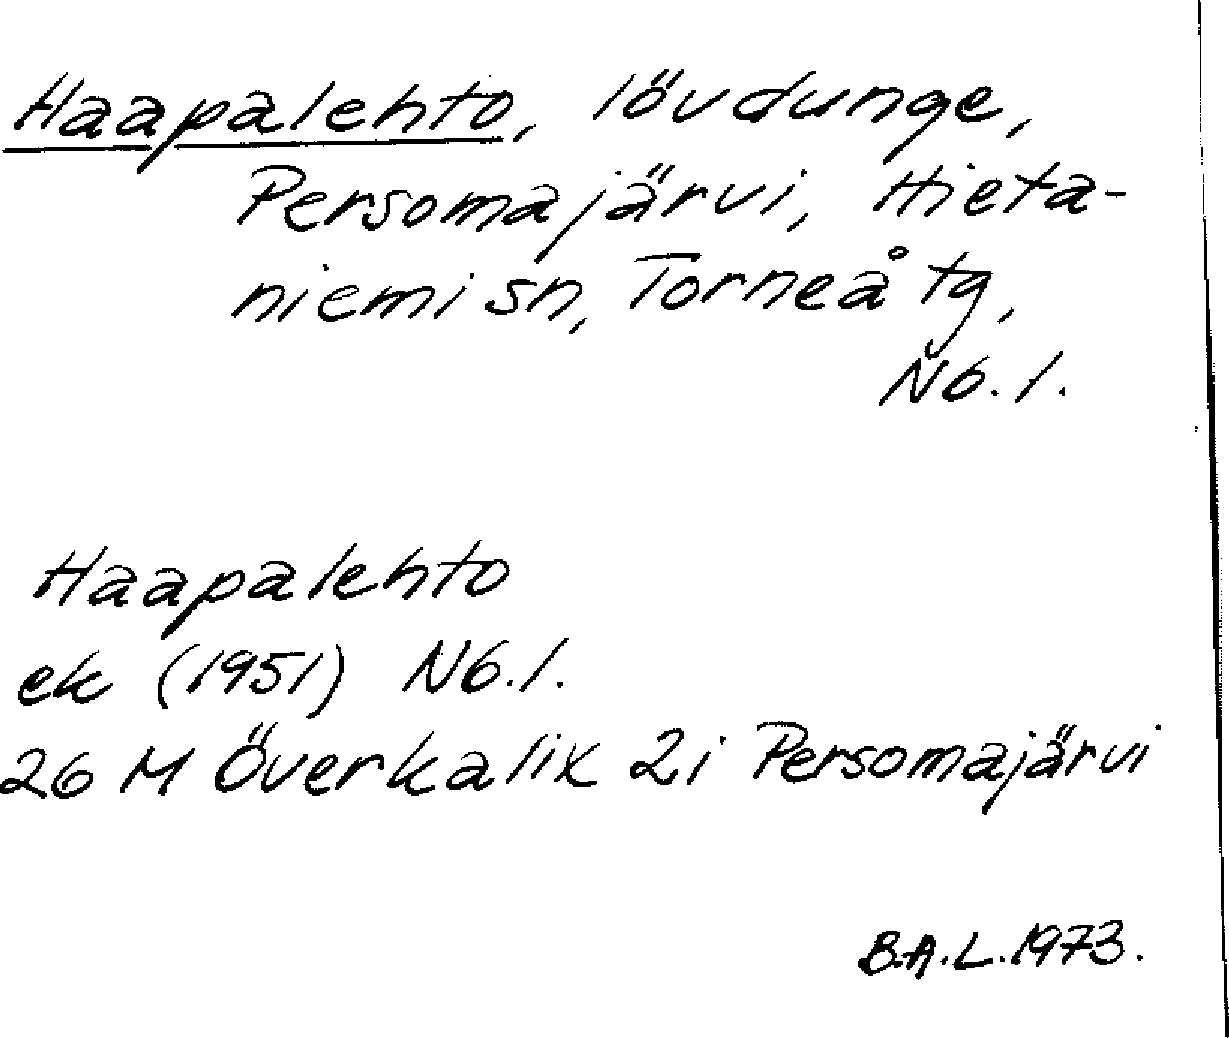 Haapalehto, lövdunge,
Persomajärvi, Hieta-
niemi sn, Torneå tg,
Nb. l.
Haapalehto
ek (1951) Nb. l.
26 M Överkalix 2i Persomajärvi
B.A.L. 1973.